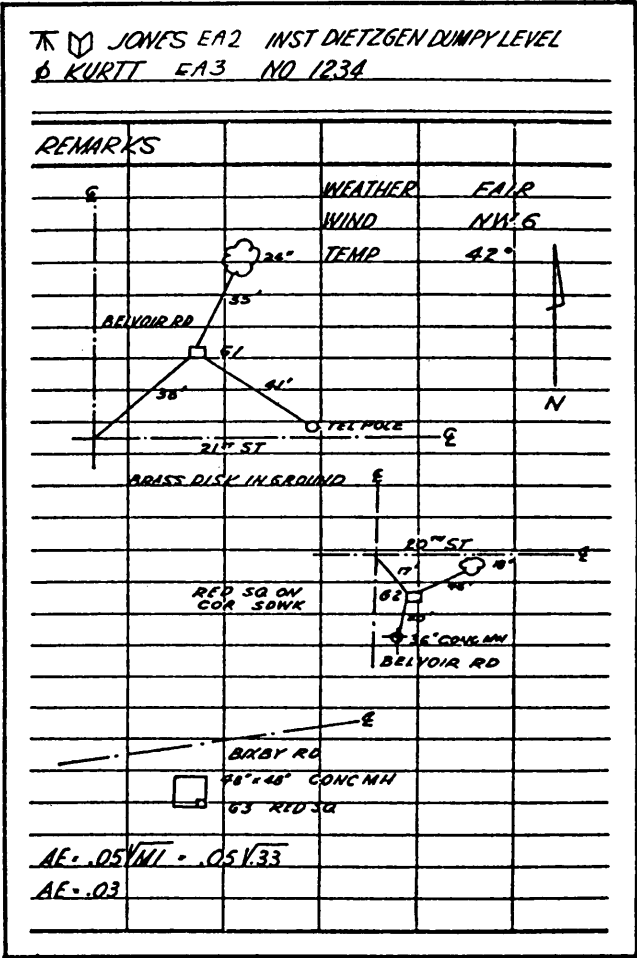 JONES EA2 INST DIETZGEN DUMPY LEVEL
φ KURTT EA3 NO 1234
REMARKS
℄
WEATHER FAIR
WIND NW 6
TEMP 42°
24"
35'
BELVOIR RD
61
38'
41'
N
TEL POLE
21ST ST
℄
BRASS DISK IN GROUND
℄
20TH ST
℄
17'
18"
RED SQ ON
COR SDWK
62
36" CONC MH
BELVOIR RD
℄
BIXBY RD
48" x 48" CONC MH
63 RED SQ
AE = .05√MI = .05√.33
AE = .03